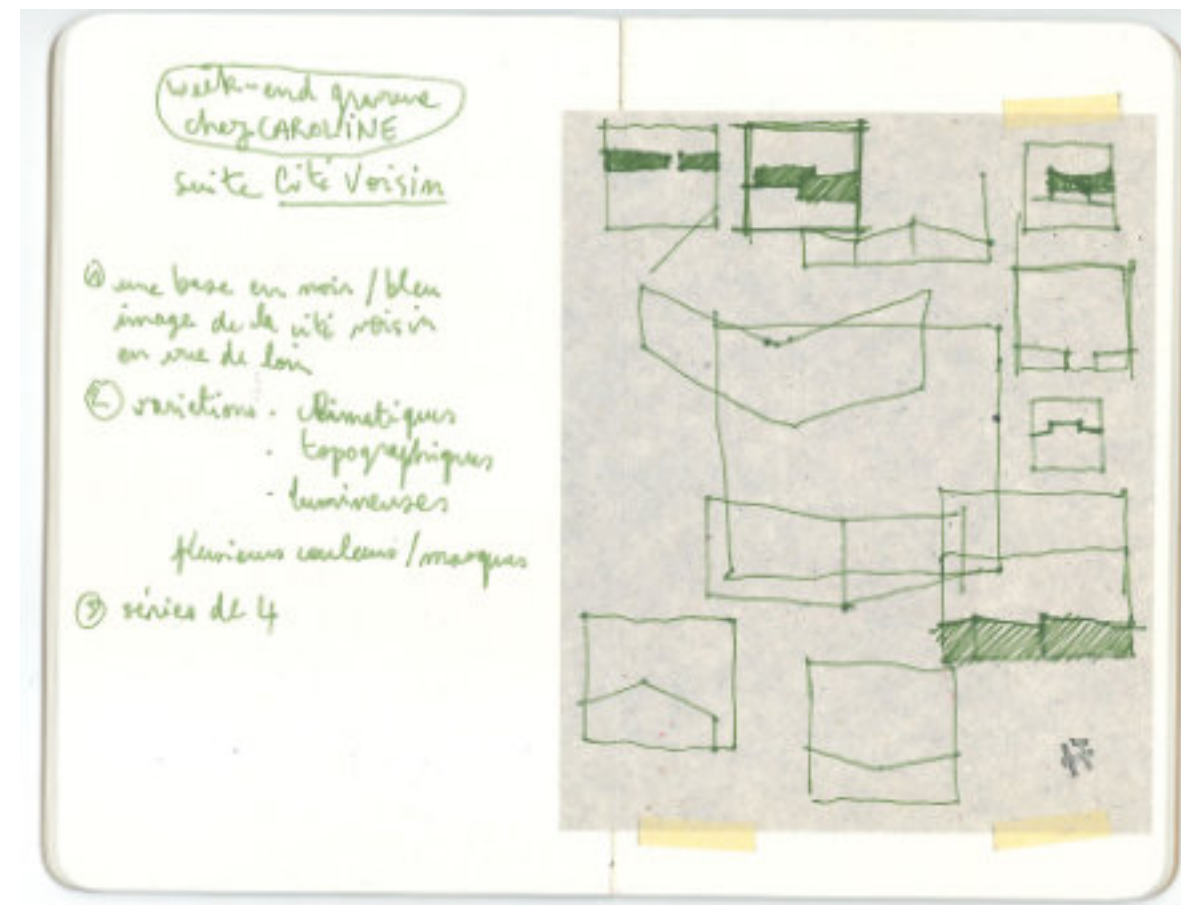 week-end gravure
chez CAROLINE
suite Cité Voisin
① une base en noir / bleu
image de la cité voisin
en vue de loin
② variations · climatiques
· topographiques
· lumineuses
plusieurs couleurs / masques
③ séries de 4